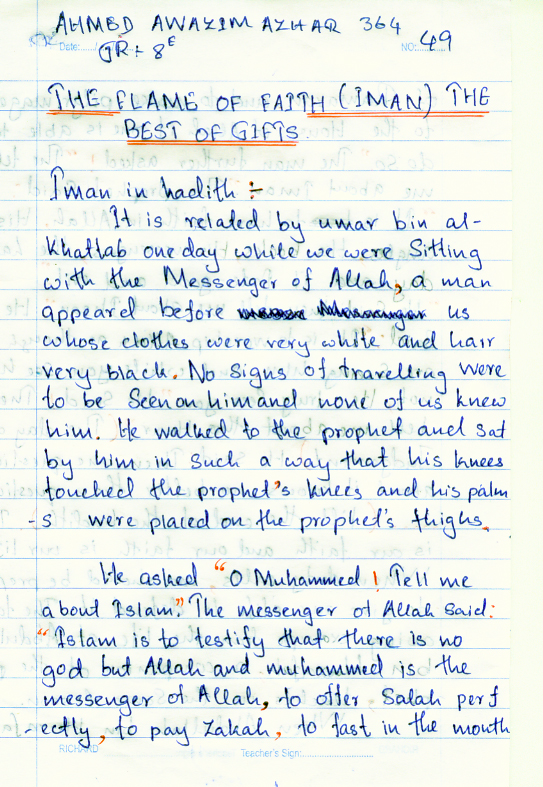 AHMED AWAZIM AZHAR 364
Date:...../ GR:- 8E NO: 49
THE FLAME OF FAITH (IMAN) THE
BEST OF GIFTS
Iman in hadith :-
It is related by umar bin al-
Khattab one day while we were Sitting
with the Messenger of Allah, a man
appeared before us
whose clothes were very white and hair
very black. No signs of travelling were
to be Seen on him and none of us knew
him. He walked to the prophet and sat
by him in such a way that his knees
touched the prophet's knees and his palm
-s were placed on the prophet's thighs.
He asked "O Muhammed! Tell me
about Islam." The messenger of Allah said:
"Islam is to testify that there is no
god but Allah and muhammed is the
messenger of Allah, to offer Salah perf
-ectly, to pay Zakah, to fast in the month
RICHARD Teacher's Sign:........................